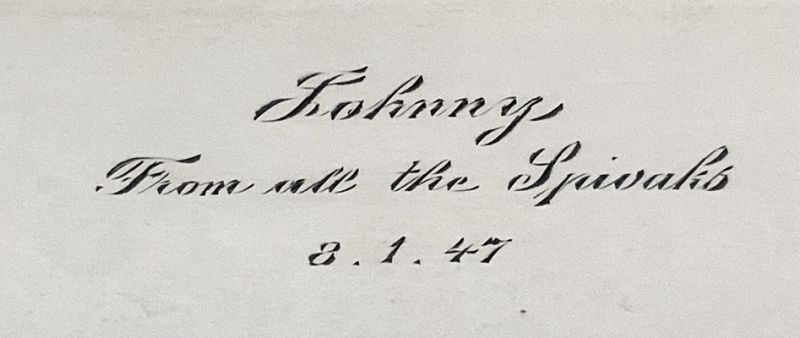 Johnny
From all the Spivaks
8.1.47